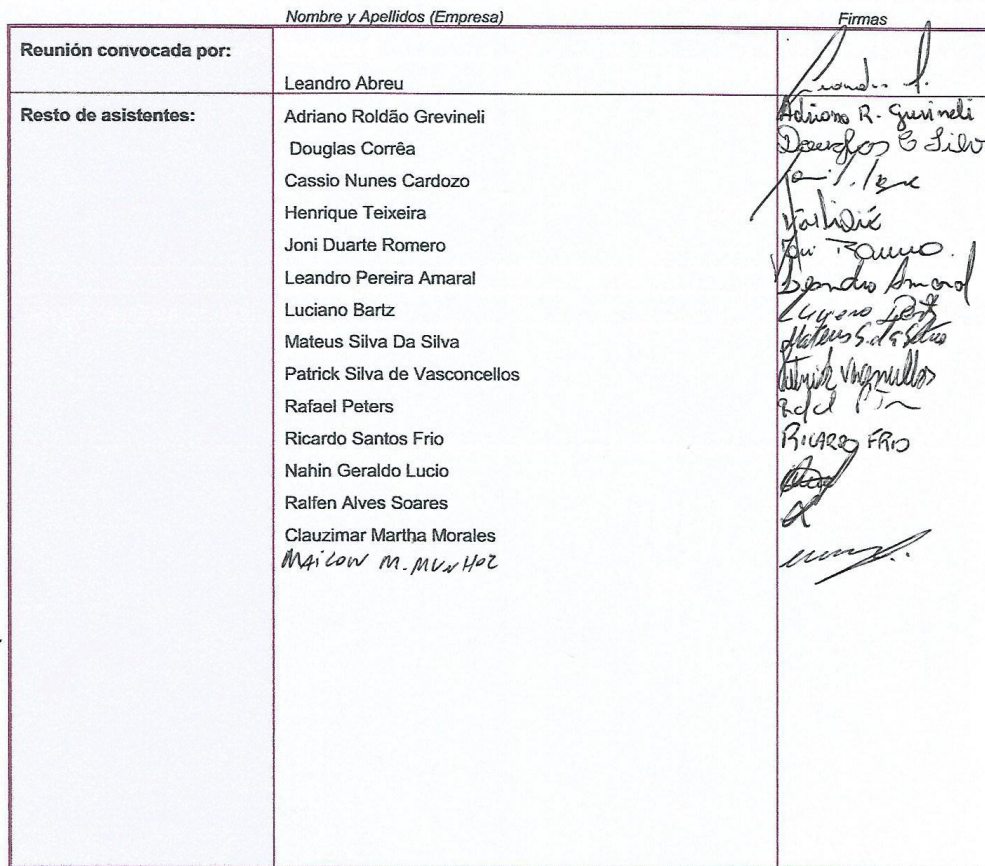 Nombre y Apellidos (Empresa) Firmas
Reunión convocada por:
Leandro Abreu
Resto de asistentes: Adriano Roldão Grevineli Adriano R. Grevineli
Douglas Corrêa Douglas C Silv
Cassio Nunes Cardozo
Henrique Teixeira
Joni Duarte Romero Joni Romero.
Leandro Pereira Amaral Leandro Amaral
Luciano Bartz Luciano Bartz
Mateus Silva Da Silva Mateus S. da Silva
Patrick Silva de Vasconcellos Patrick Vasconcellos
Rafael Peters
Ricardo Santos Frio RICARDO FRIO
Nahin Geraldo Lucio
Ralfen Alves Soares
Clauzimar Martha Morales
MAiCOW M. MUNHOZ